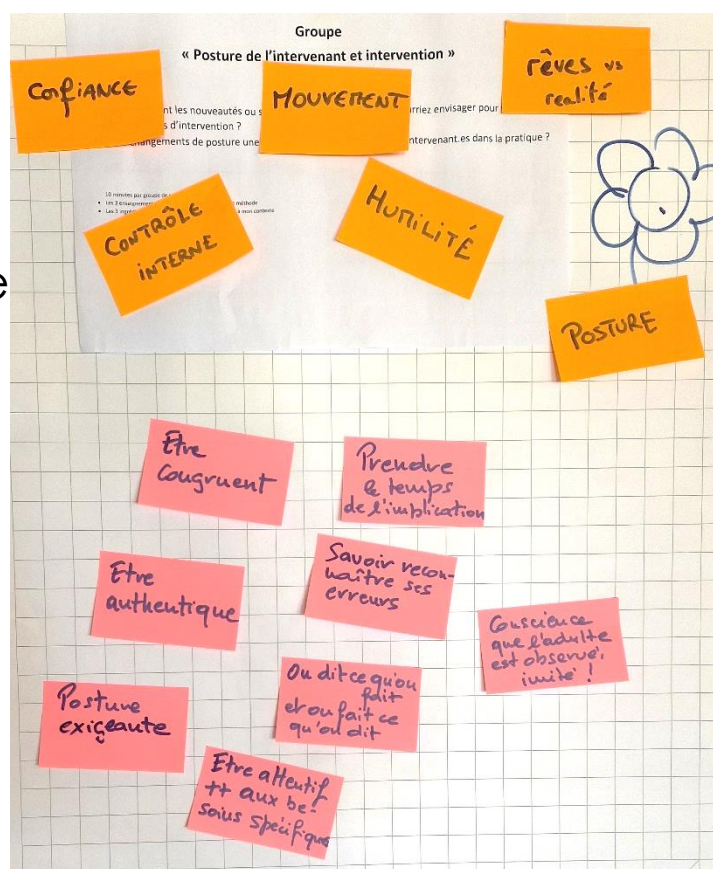 Groupe
« Posture de l'intervenant et intervention »
CONFIANCE
MOUVEMENT
rêves vs
realité
nt les nouveautés ou s
rriez envisager pour
s d'intervention ?
hangements de posture une
ntervenant.es dans la pratique ?
10 minutes par groupe de
Les 3
méthode
Les 3
à mon contexte
CONTRÔLE
INTERNE
HUMILITÉ
POSTURE
e
Etre
congruent
Prendre
le temps
de l'implication
Etre
authentique
Savoir recon-
naître ses
erreurs
Conscience
que l'adulte
est observé,
imité !
Posture
exigeante
On dit ce qu'on
fait
et on fait ce
qu'on dit
Etre attentif
++ aux be-
soins spécifique